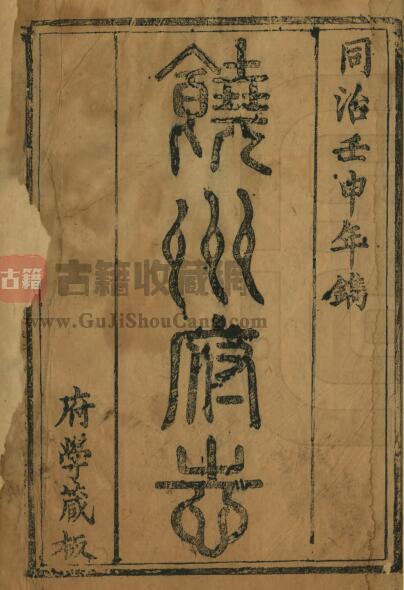 同治壬申年鐫
饒州府志
府學藏板
古籍
古籍收藏網
www.GuJiShouCang.com